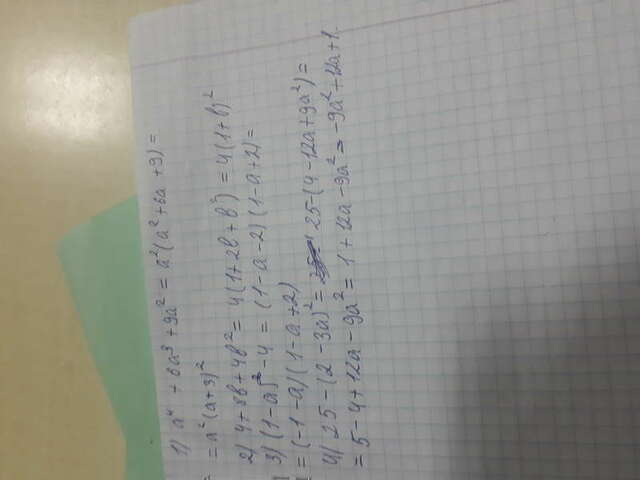 1) a⁴ + 6a³ + 9a² = a²(a² + 6a + 9) =
= a²(a+3)²
2) 4 + 8b + 4b² = 4(1 + 2b + b²) = 4(1+b)²
3) (1-a)² - 4 = (1-a-2)(1-a+2) =
= (-1-a)(1-a+2)
4) 25 - (2-3a)² = 25 - (4-12a+9a²) =
= 5-4+12a-9a² = 1+12a-9a² = -9a²+12a+1.